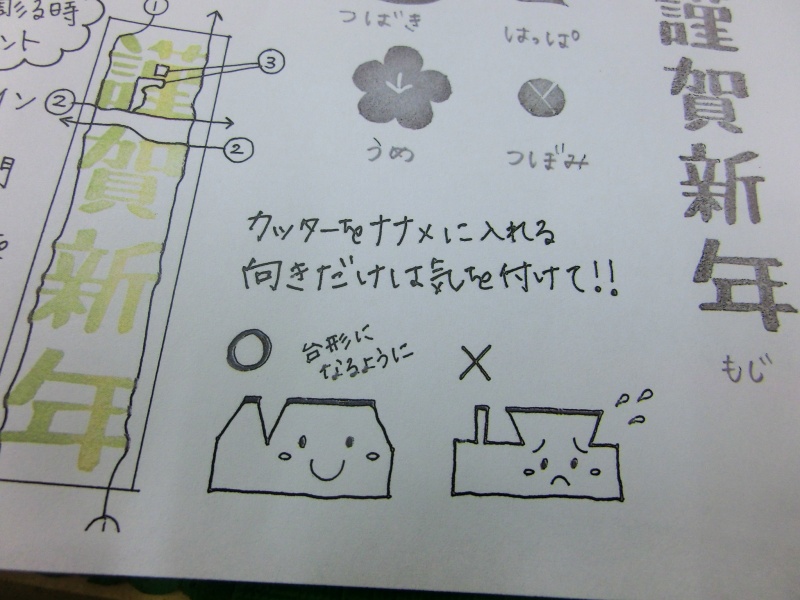 彫る時
ント
イン
①
②
③
②
謹賀新年
つばき
はっぱ
うめ
つぼみ
謹賀新年
もじ
カッターをナナメに入れる
向きだけは気を付けて!!
○
台形に
なるように
×